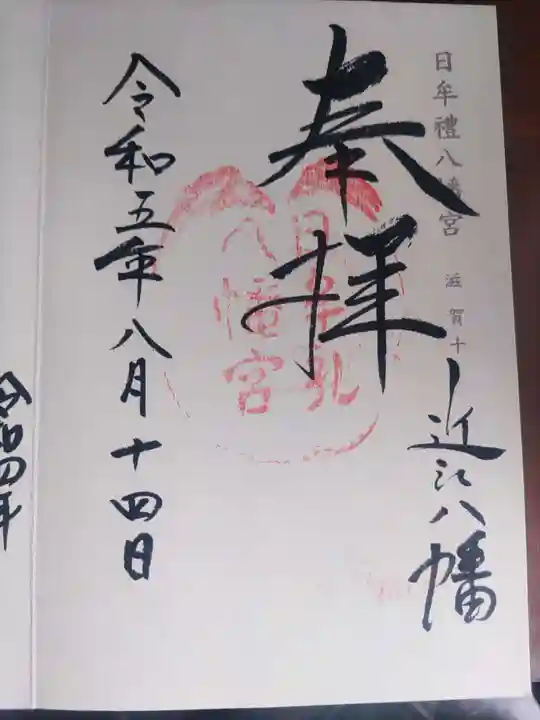 日牟禮八幡宮 滋賀十
近江八幡
奉拝
日牟礼
八幡宮
令和五年八月十四日
令和四年